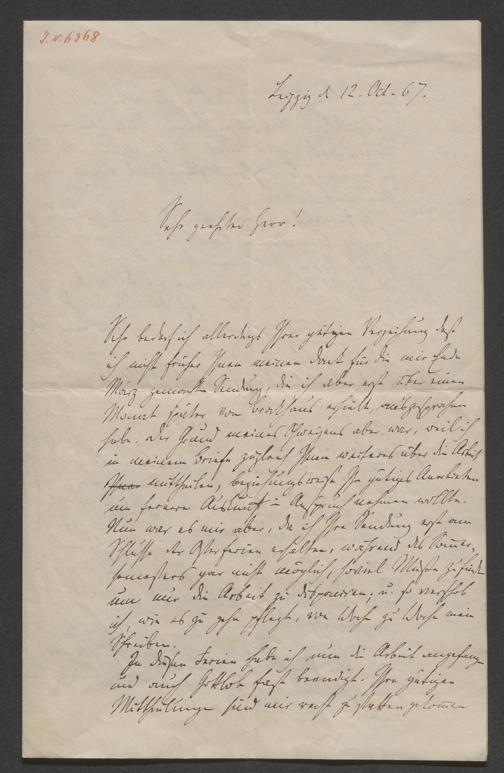 J.N. 6368
Leipzig d 12. Oct. 67.
Sehr geehrter Herr!
Sehr bedarf ich allerdings Ihrer gütigen Verzeihung daß
ich nicht früher Ihnen meinen Dank für die mir Ende
März gemachte Sendung, die ich aber erst über einen
Monat später von Brockhaus erhielt, ausgesprochen
habe. Der Grund meines Schweigens aber war, weil ich
in meinem Briefe zugleich Ihnen weiteres über die Arbeit
mittheilen, beziehungsweise Ihr gütiges Anerbieten
um fernere Auskunft in Anspruch nehmen wollte.
Nun war es mir aber, da ich Ihre Sendung erst am
Schlusse der Osterferien erhalten, während des Sommer-
semesters gar nicht möglich, soviel Muße zu finden
um nur die Arbeit zu disponiren, u. so verschob
ich, wie es zu gehn pflegt, von Woche zu Woche mein
Schreiben.
In diesen Ferien habe ich nun die Arbeit angefangen
und auch Gottlob fast beendigt. Ihre gütigen
Mittheilungen sind mir recht zu statten gekommen